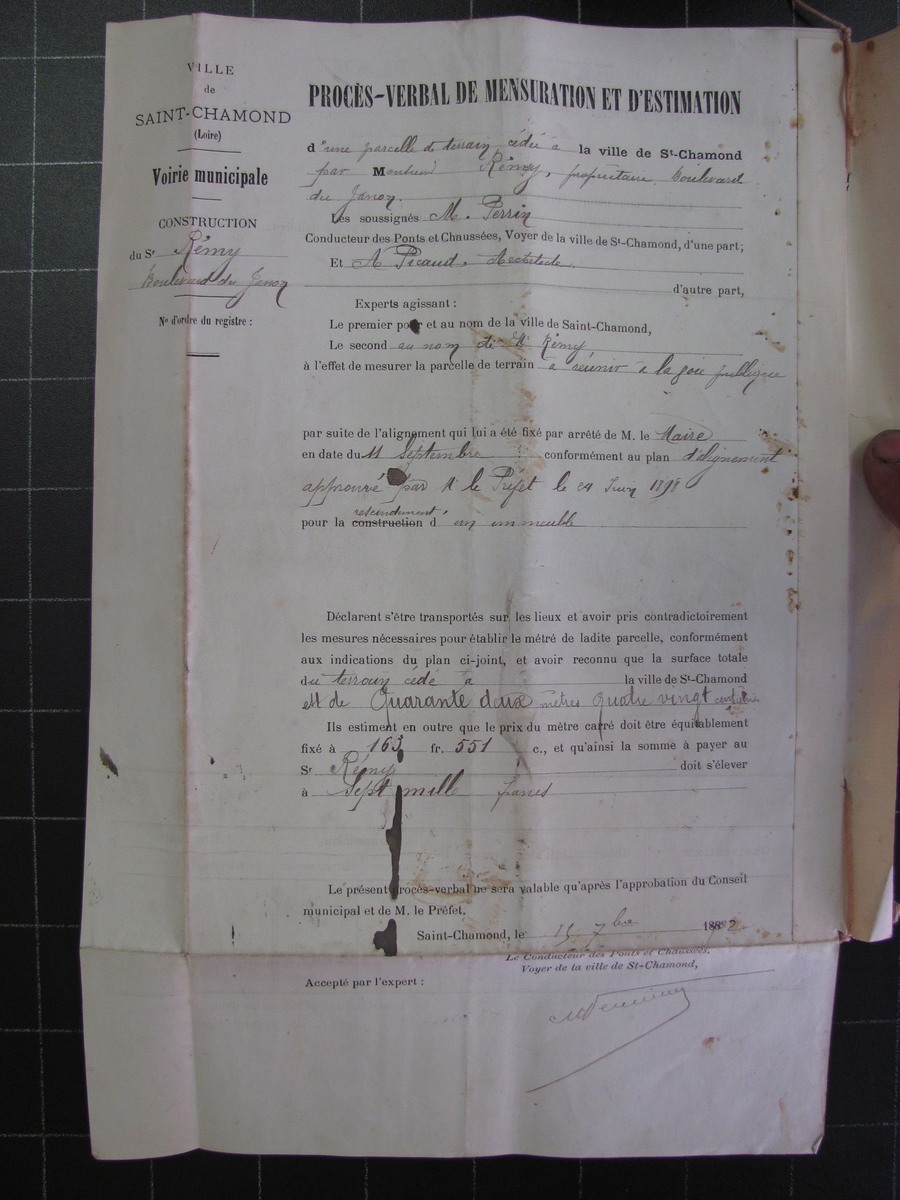 VILLE
de
SAINT-CHAMOND
(Loire)
Voirie municipale
CONSTRUCTION
du Sr Rémy
Boulevard du Janon
No d'ordre du registre :
PROCÈS-VERBAL DE MENSURATION ET D'ESTIMATION
d'une parcelle de terrain cédée à la ville de St-Chamond
par Monsieur Rémy, propriétaire, boulevard
du Janon.
Les soussignés M. Perrin
Conducteur des Ponts et Chaussées, Voyer de la ville de St-Chamond, d'une part;
Et A Picaud. Architecte.
d'autre part,
Experts agissant :
Le premier pour et au nom de la ville de Saint-Chamond,
Le second au nom de Mr Rémy
à l'effet de mesurer la parcelle de terrain à réunir à la voie publique
par suite de l'alignement qui lui a été fixé par arrêté de M. le Maire
en date du 11 Septembre conformément au plan d'alignement
approuvé par M le Préfet le 24 Juin 1898
rescindement
pour la construction d'un immeuble
Déclarent s'être transportés sur les lieux et avoir pris contradictoirement
les mesures nécessaires pour établir le métré de ladite parcelle, conformément
aux indications du plan ci-joint, et avoir reconnu que la surface totale
du terrain cédé à la ville de St-Chamond
est de Quarante deux mètres quatre vingt
Ils estiment en outre que le prix du mètre carré doit être équitablement
fixé à 163 fr. 551 c., et qu'ainsi la somme à payer au
Sr Rémy doit s'élever
à Sept mille francs
Le présent procès-verbal ne sera valable qu'après l'approbation du Conseil
municipal et de M. le Préfet.
Saint-Chamond, le 15 7bre
Le Conducteur des Ponts et Chaussées,
Voyer de la ville de St-Chamond,
Accepté par l'expert :